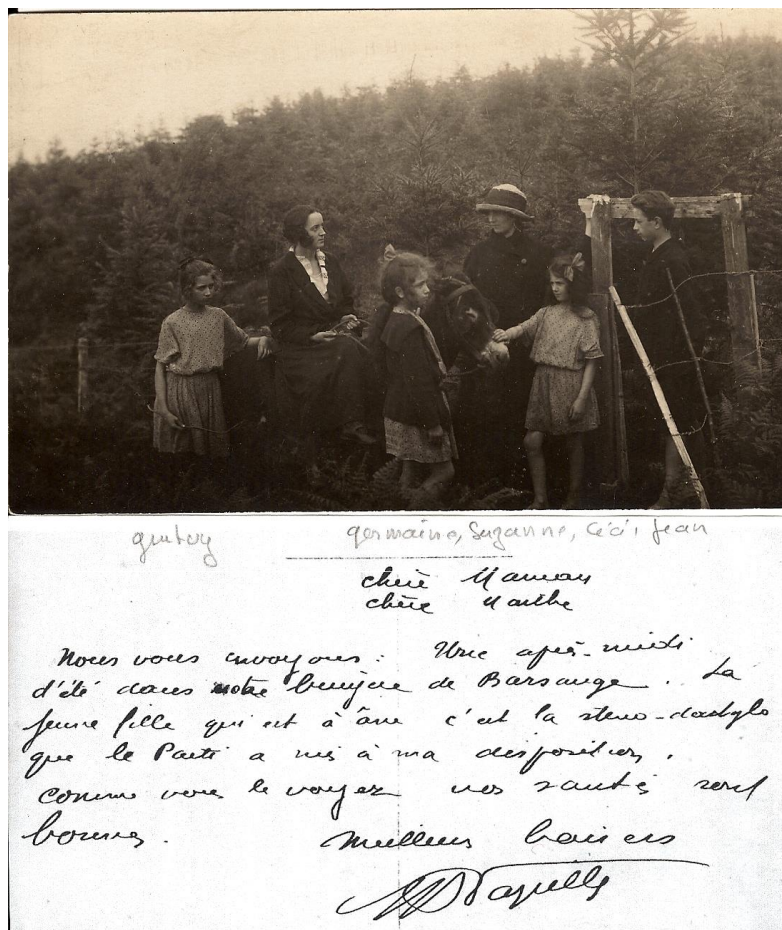 germaine, Suzanne, Céci, Jean
chère Maman
chère Marthe
Nous vous envoyons : Une après-midi
d'été dans notre de Barsange. La
jeune fille qui est à âne c'est la steno-dactylo
que le Parti a mis à ma disposition.
comme vous le voyez nos santés sont
bonnes.
Meilleurs baisers